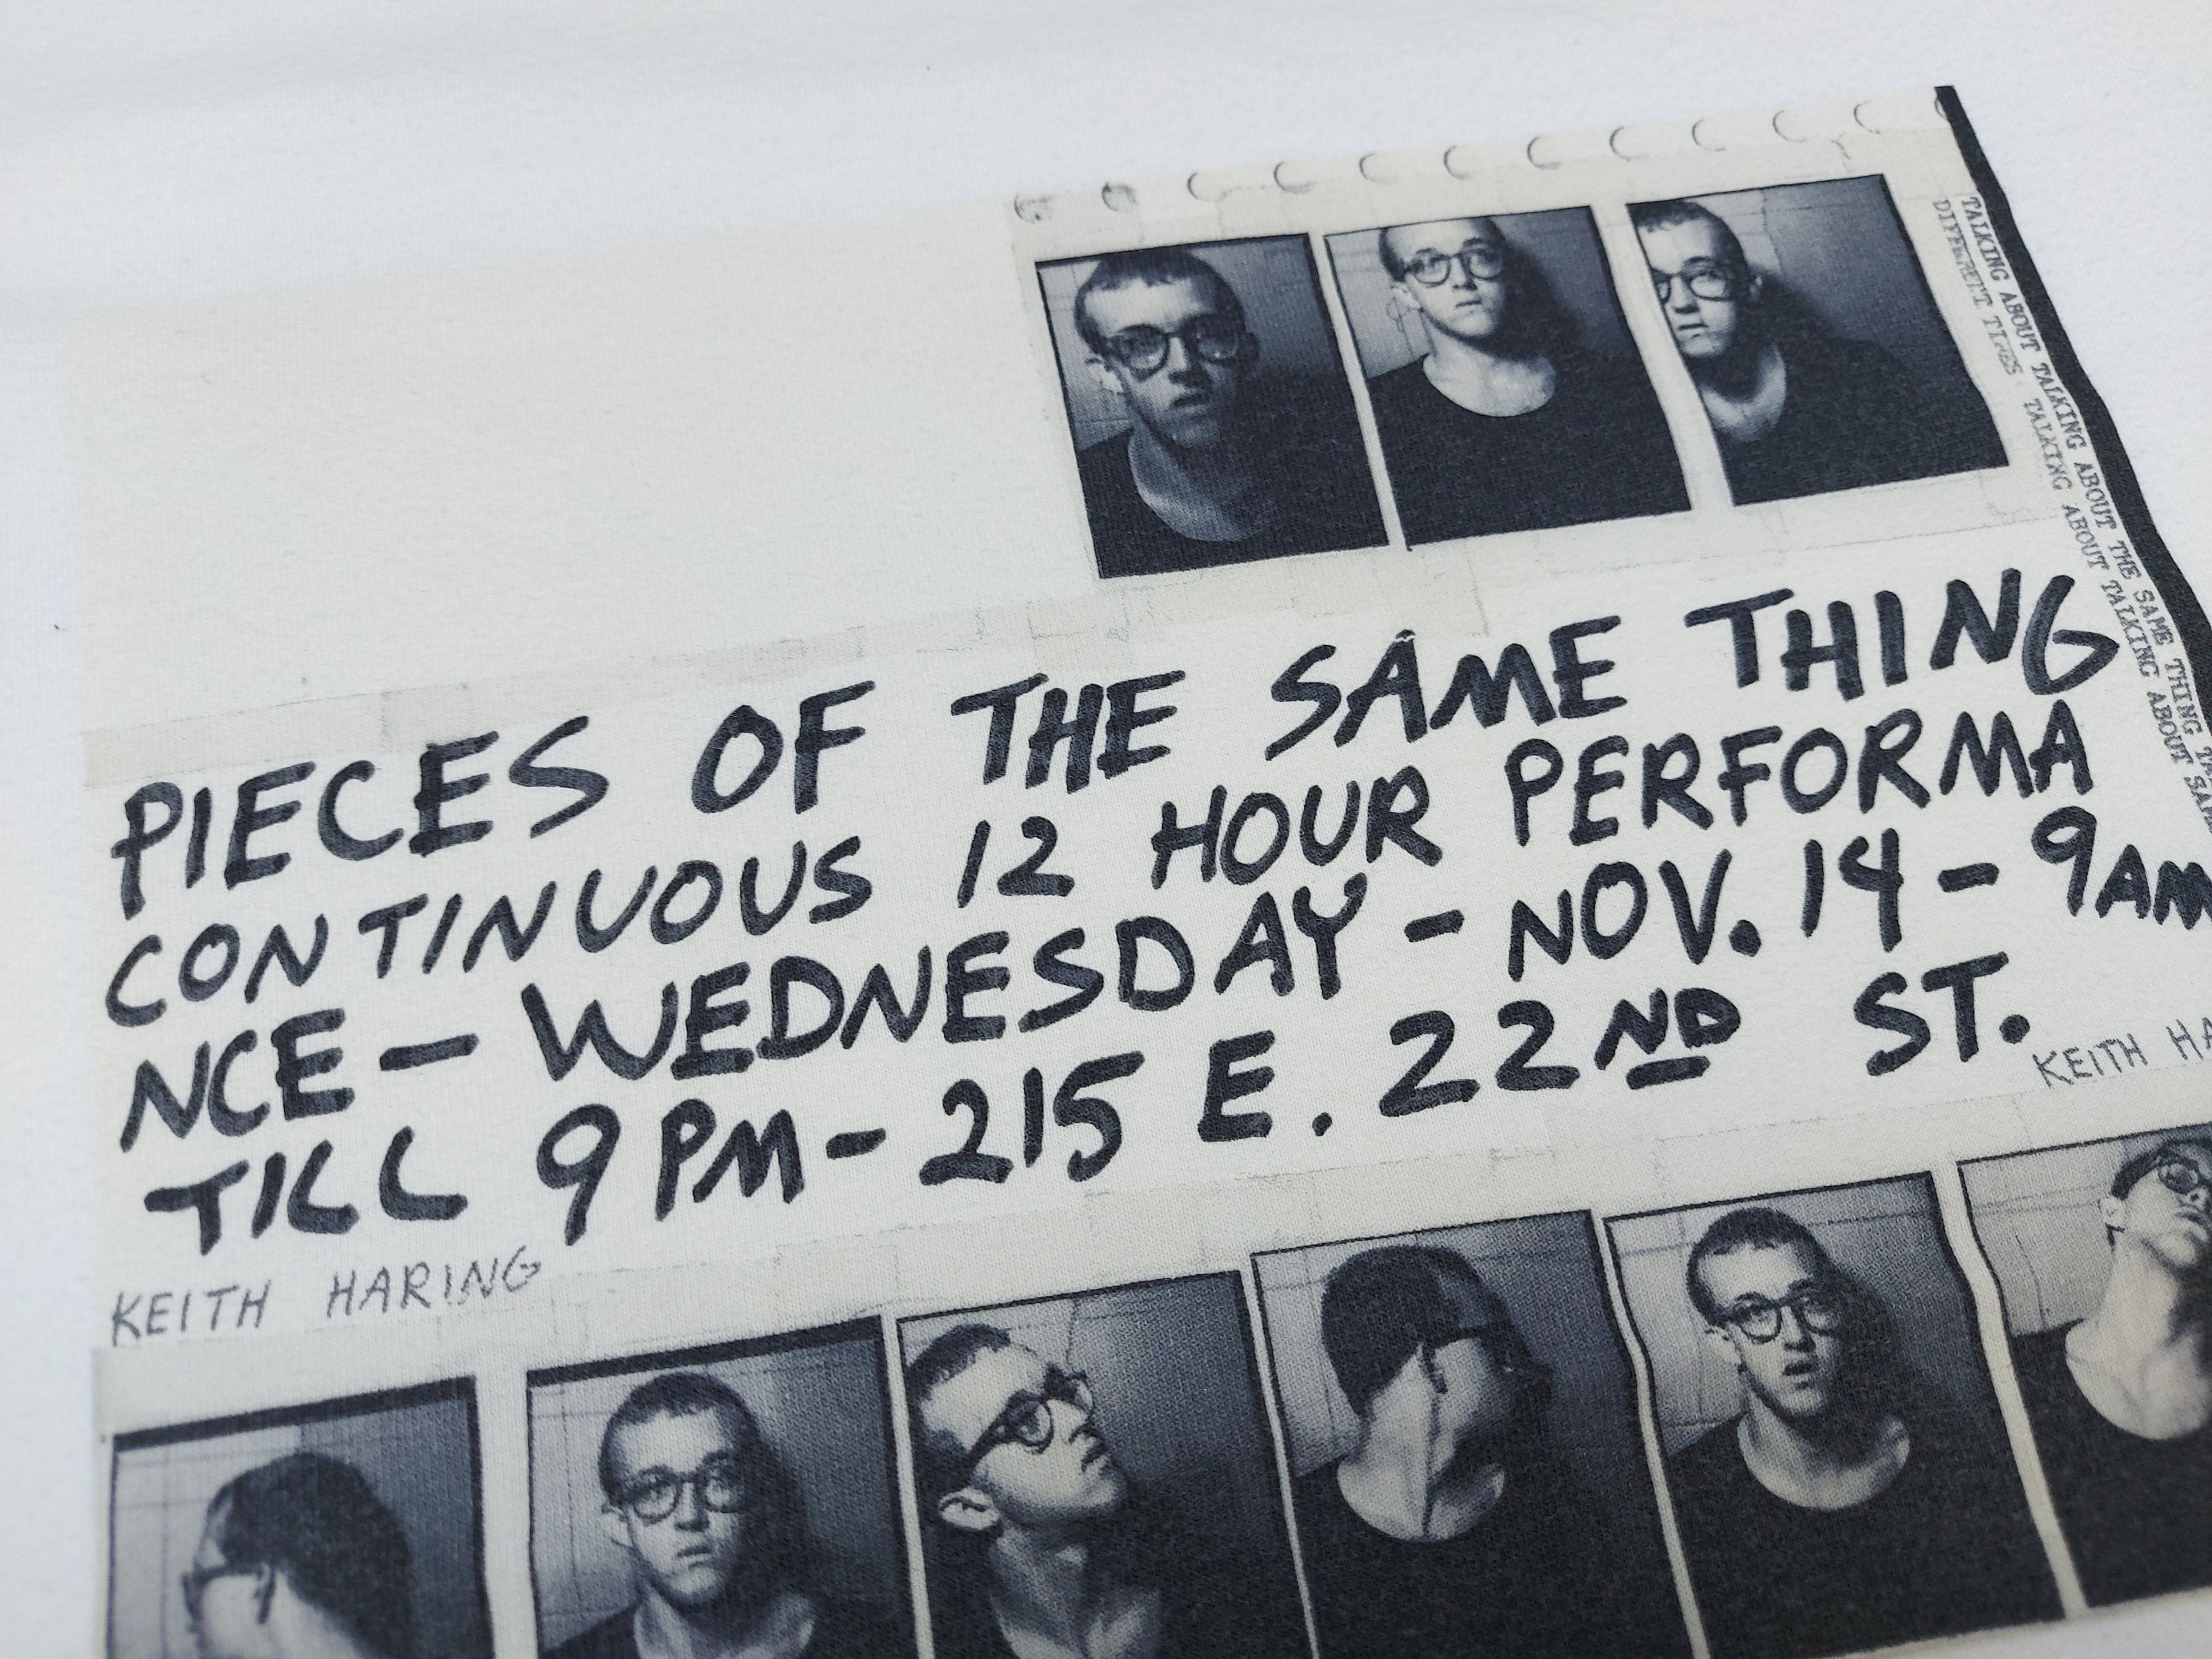 TALKING ABOUT TALKING ABOUT THE SAME THING
DIFFERENT TIMES TALKING ABOUT TALKING ABOUT
PIECES OF THE SAME THING
CONTINUOUS 12 HOUR PERFORMA
NCE - WEDNESDAY - NOV. 14 - 9AM
TILL 9PM - 215 E. 22ND ST.
KEITH HA
KEITH HARING